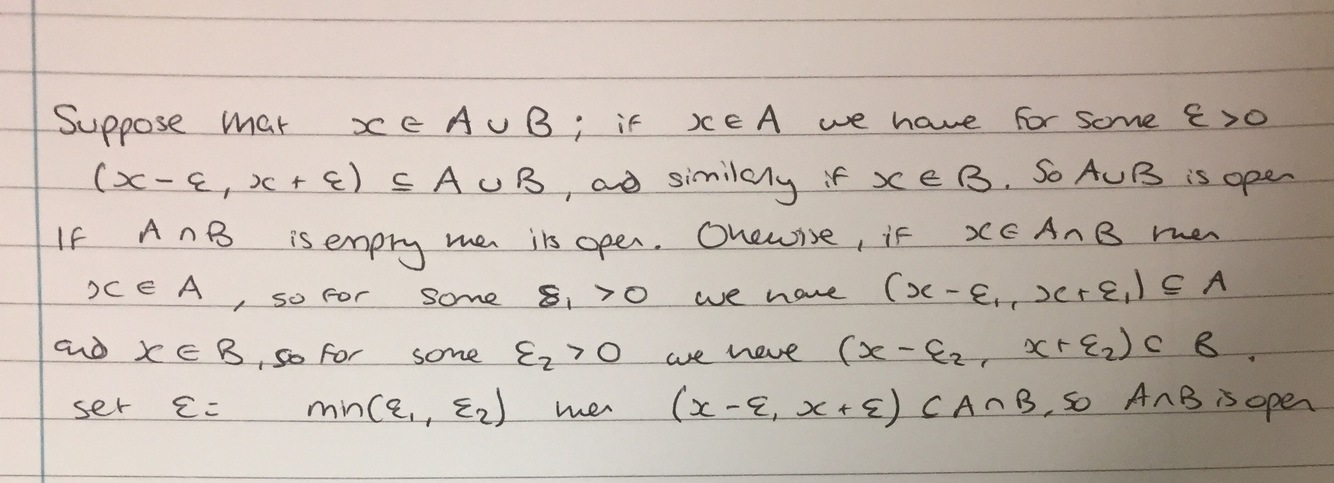 Suppose that x ∈ A ∪ B ; if x ∈ A we have for some ε > 0
(x - ε, x + ε) ⊆ A ∪ B, and similarly if x ∈ B. So A∪B is open
If A ∩ B is empty then its open. Otherwise, if x ∈ A ∩ B then
x ∈ A, so for some ε₁ > 0 we have (x - ε₁, x + ε₁) ⊆ A
and x ∈ B, so for some ε₂ > 0 we have (x - ε₂, x + ε₂) ⊂ B.
set ε = min(ε₁, ε₂) then (x - ε, x + ε) ⊂ A ∩ B, so A∩B is open